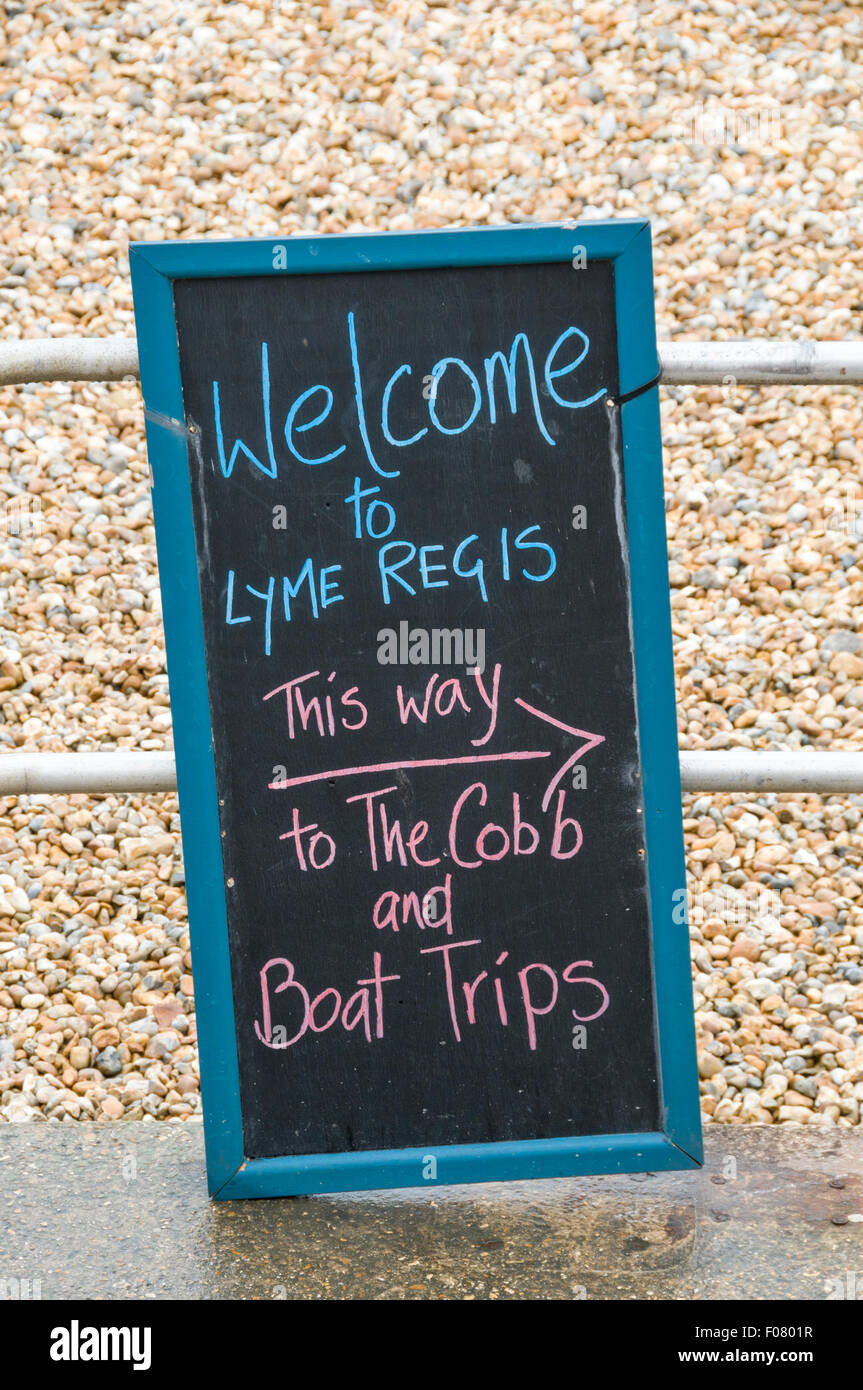 Welcome
to
LYME REGIS
This way
to The Cobb
and
Boat Trips
alamy
Image ID: F0801R
www.alamy.com